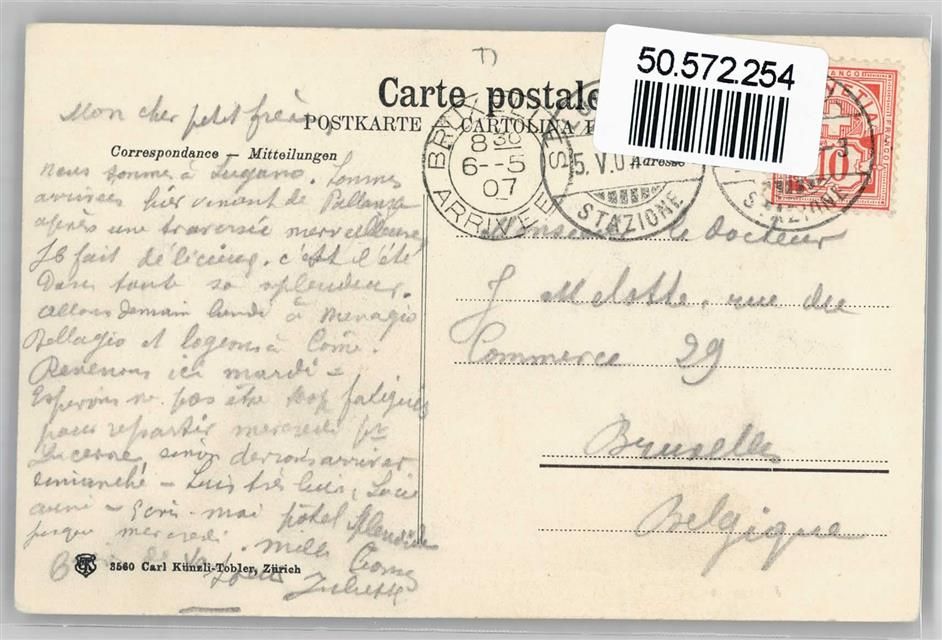 50.572.254
Carte postale
POSTKARTE CARTOLINA
Adresse
BRUX
8 30
6--5
07
ARRIVÉE
5.V.0
STAZIONE
STAZIONE
FRANCO
10
Mon cher petit frère,
Correspondance – Mitteilungen
Nous sommes à Lugano. Sommes
arrivées hier venant de Pallanza
après une traversée merveilleuse
Il fait délicieux. c'est l'été
Dans toute sa splendeur.
allons demain lundi à Menagio
Bellagio et logeons à Côme.
Revenons ici mardi –
Espérons ne pas être trop fatigués
pour repartir mercredi pr
Lucerne sinon devrons arriver
dimanche – Suis très bien, Lucie
aussi – Ecris-moi hôtel Splendide
jusque mercredi.
mille
Juliette
Monsieur le Docteur
J Melotte, rue du
Commerce 29
Bruxelles
Belgique
3560 Carl Künzli-Tobler, Zürich